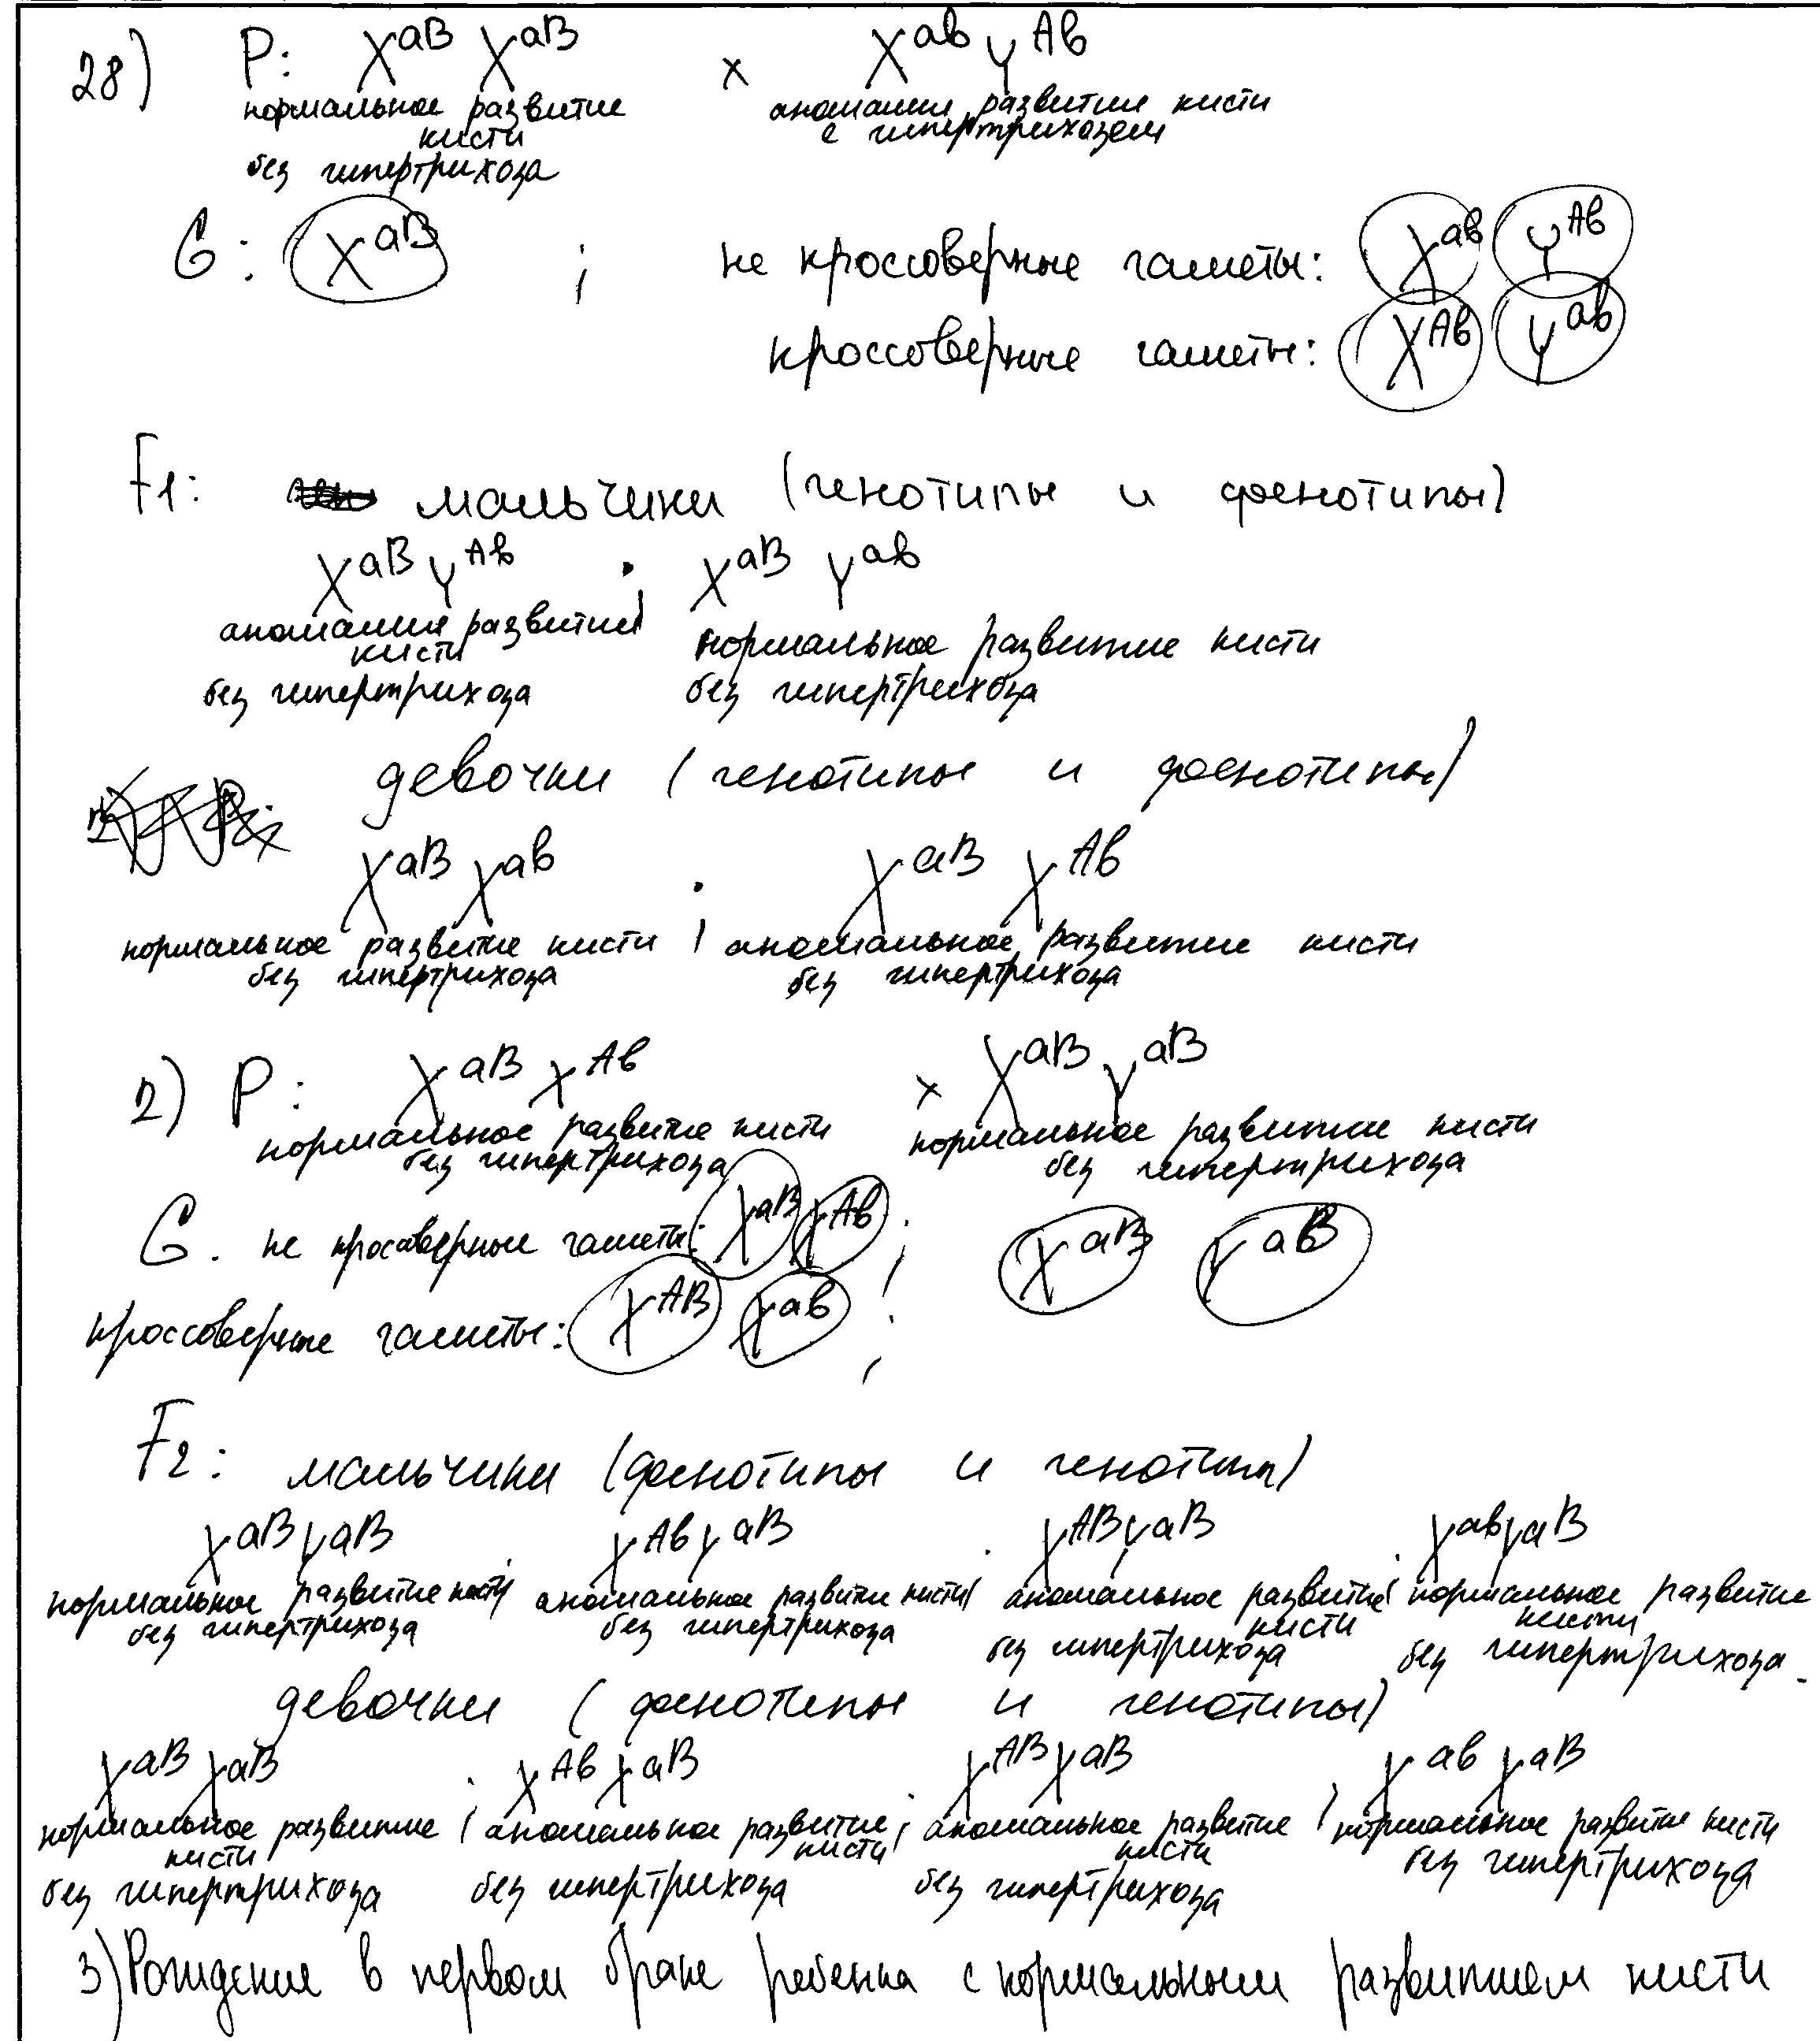 28) P: X^aB X^aB x X^ab Y^Ab
нормальное развитие кисти без гипертрихоза
аномалии развитии кисти с гипертрихозом
G: X^aB ; не кроссоверные гаметы: X^ab Y^Ab
кроссоверные гаметы: X^Ab Y^ab
F1: мальчики (генотипы и фенотипы)
X^aB Y^Ab ; X^aB Y^ab
аномалия развития кисти без гипертрихоза
нормальное развитие кисти без гипертрихоза
девочки (генотипы и фенотипы)
X^aB X^ab ; X^aB X^Ab
нормальное развитие кисти без гипертрихоза
аномальное развитие кисти без гипертрихоза
2) P: X^aB X^Ab x X^aB Y^aB
нормальное развитие кисти без гипертрихоза
нормальное развитие кисти без гипертрихоза
G. не кросоверные гаметы: X^aB X^Ab ; X^aB Y^aB
кроссоверные гаметы: X^AB X^ab ;
F2: мальчики (фенотипы и генотипы)
X^aB Y^aB ; X^Ab Y^aB ; X^AB Y^aB ; X^ab Y^aB
нормальное развитие кисти без гипертрихоза
аномальное развитие кисти без гипертрихоза
аномальное развитие кисти без гипертрихоза
нормальное развитие кисти без гипертрихоза.
девочки (фенотипы и генотипы)
X^aB X^aB ; X^Ab X^aB ; X^AB X^aB ; X^ab X^aB
нормальное развитие кисти без гипертрихоза
аномальное развитие кисти без гипертрихоза
аномальное развитие кисти без гипертрихоза
нормальное развитие кисти без гипертрихоза
3) Рождение в первом браке ребенка с нормальным развитием кисти